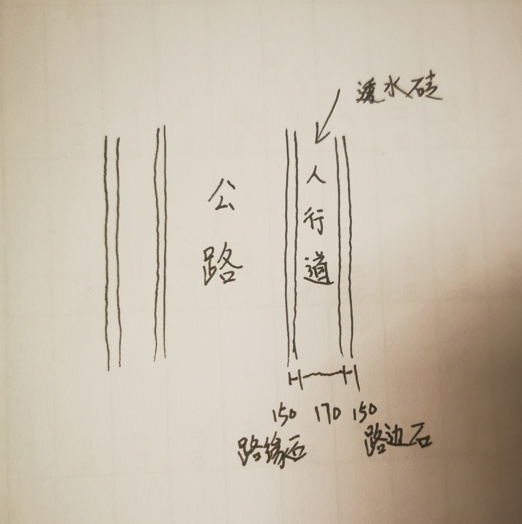 透水砖
人行道
公路
150 170 150
路缘石 路边石